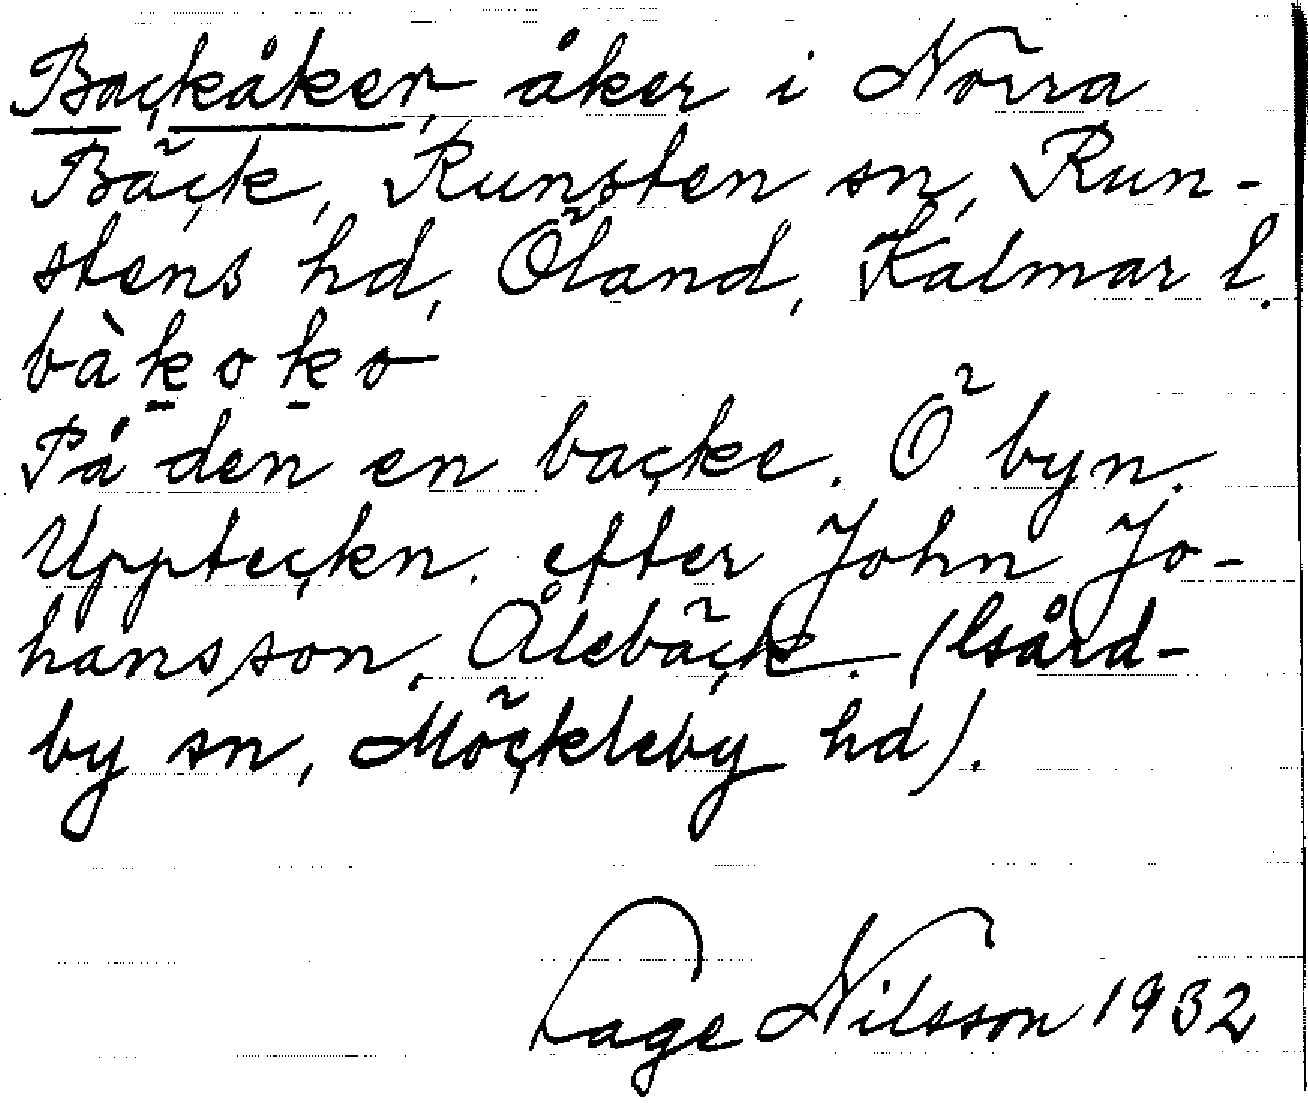 Backåker, åker i Norra
Bäck, Runsten sn, Run-
stens hd, Öland, Kalmar l.
bàkoko
På den en backe. Ö byn.
Uppteckn. efter John Jo-
hansson, Ålebäck. (Gård-
by sn, Möckleby hd).
Tage Nilsson 1932